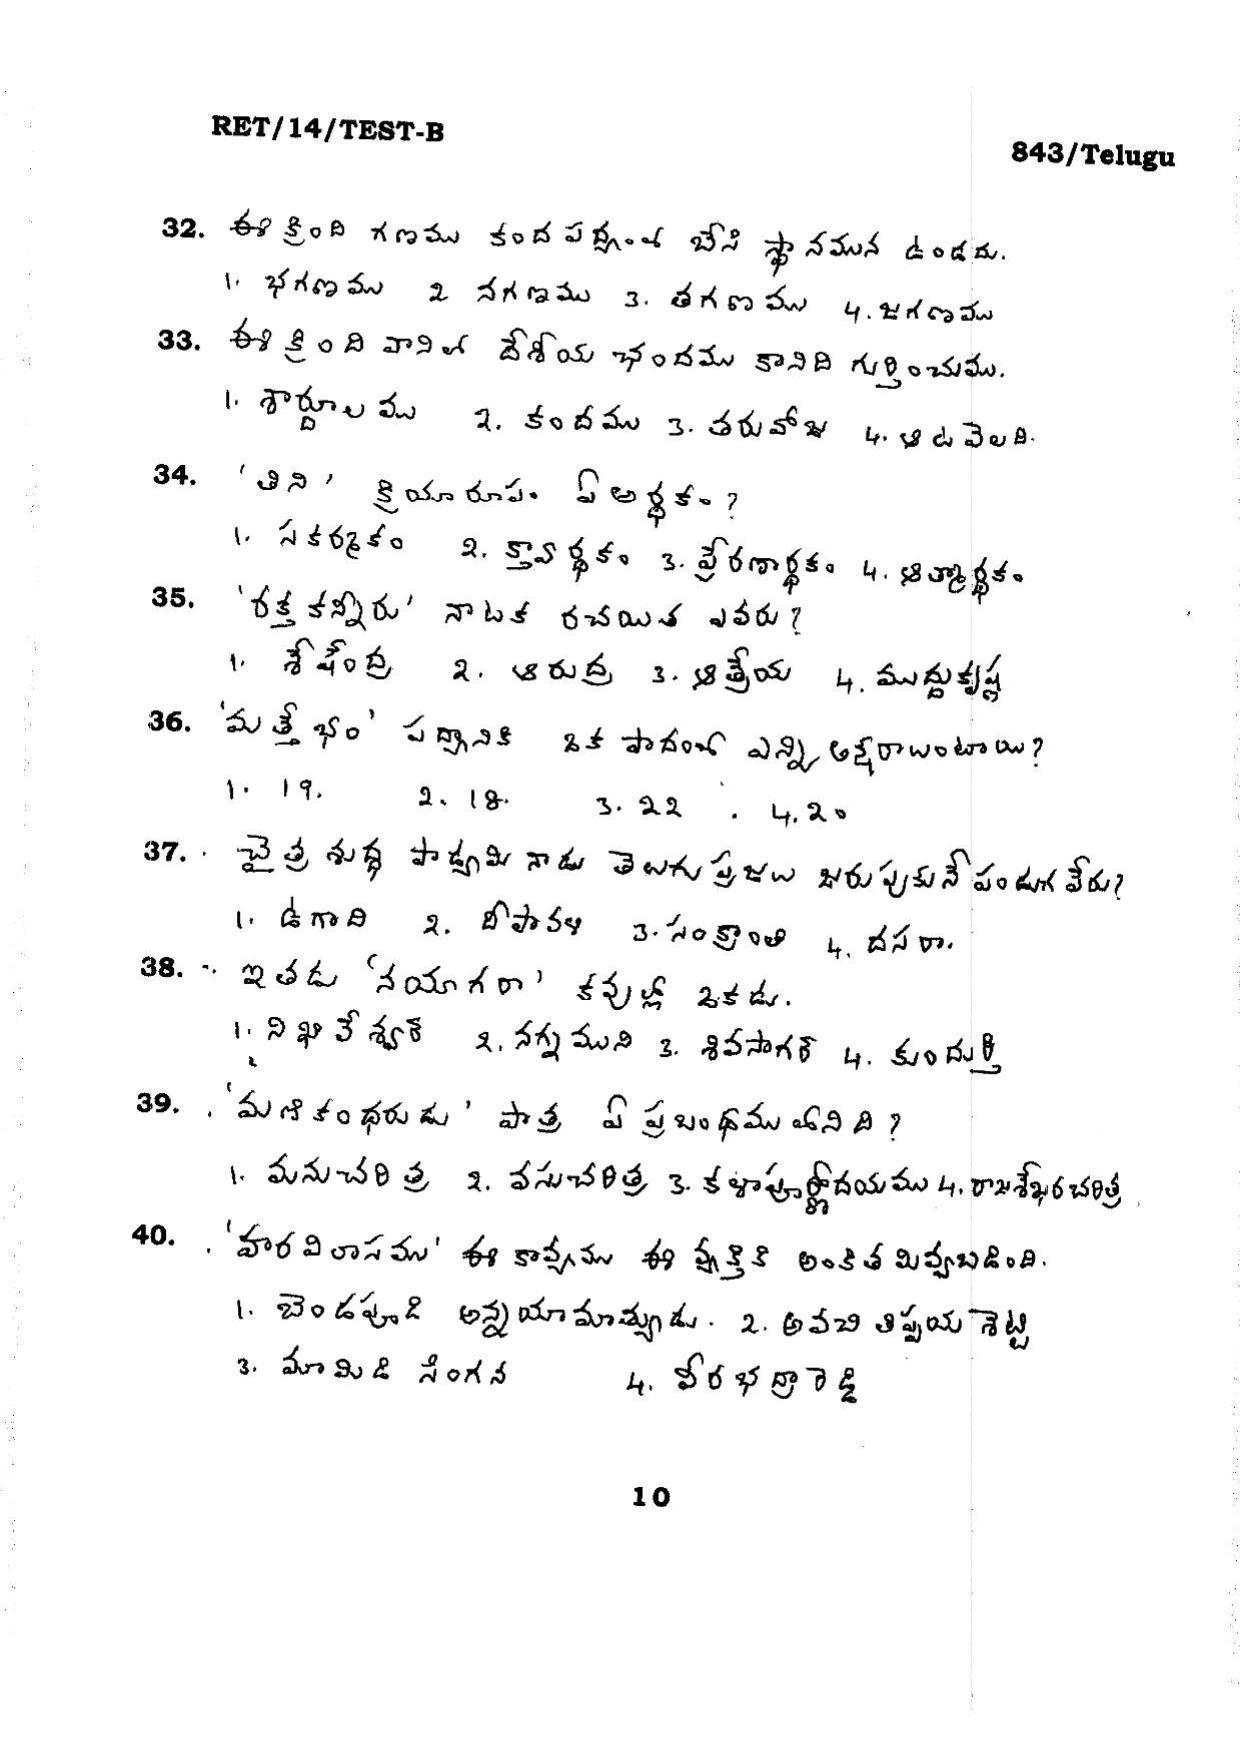 RET/14/TEST-B
843/Telugu
32. ఈ క్రింది గణము కంద పద్యంలో బేసి స్థానమున ఉండదు.
1. భగణము 2 నగణము 3. తగణము 4. జగణము
33. ఈ క్రింది వానిలో దేశీయ ఛందము కానిది గుర్తించుము.
1. శార్దూలము 2. కందము 3. తరువోజ 4. ఆటవెలది.
34. 'తిని' క్రియారూపం ఏ అర్థకం?
1. సకర్మకం 2. క్త్వార్థకం 3. ప్రేరణార్థకం 4. ఆత్మార్థకం
35. 'రక్త కన్నీరు' నాటక రచయిత ఎవరు?
1. శేషేంద్ర 2. ఆరుద్ర 3. ఆత్రేయ 4. ముద్దుకృష్ణ
36. 'మత్తేభం' పద్యానికి ఒక పాదంలో ఎన్ని అక్షరాలుంటాయి?
1. 19. 2. 18. 3. 22 . 4. 20
37. చైత్ర శుద్ధ పాడ్యమి నాడు తెలుగు ప్రజలు జరుపుకునే పండుగ పేరు?
1. ఉగాది 2. దీపావళి 3. సంక్రాంతి 4. దసరా.
38. ఇతడు 'నయాగరా' కవుల్లో ఒకడు.
1. నిఖిలేశ్వర్ 2. నగ్నముని 3. శివసాగర్ 4. కుందుర్తి
39. 'మణికంధరుడు' పాత్ర ఏ ప్రబంధములోనిది?
1. మనుచరిత్ర 2. వసుచరిత్ర 3. కళాపూర్ణోదయము 4. రాజశేఖరచరిత్ర
40. 'హరవిలాసము' ఈ కావ్యము ఈ వ్యక్తికి అంకితమివ్వబడింది.
1. బెండపూడి అన్నయామాత్యుడు. 2. అవచి తిప్పయ శెట్టి
3. మామిడి సింగన 4. వీరభద్రారెడ్డి
10